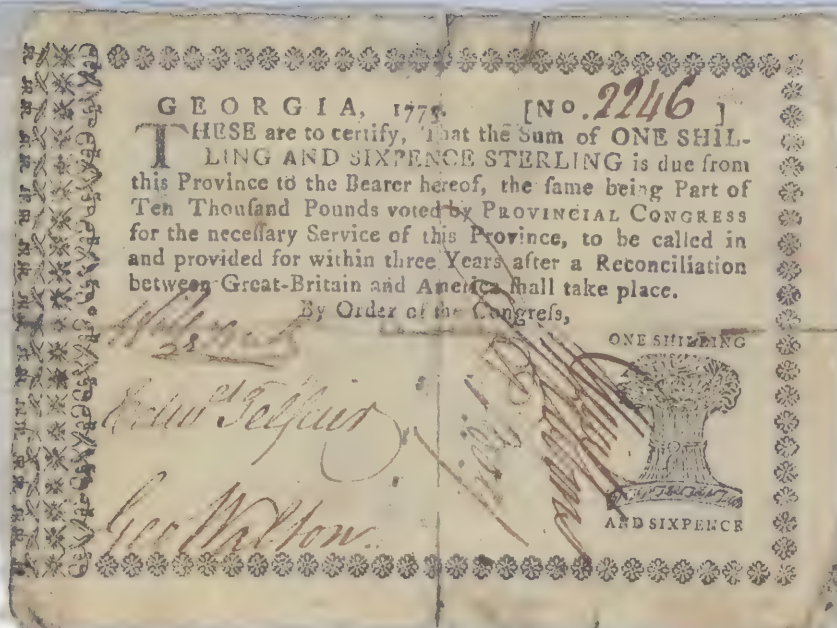 GEORGIA, 1775. [No. 2246]
THESE are to certify, That the Sum of ONE SHIL-
LING AND SIXPENCE STERLING is due from
this Province to the Bearer hereof, the ſame being Part of
Ten Thouſand Pounds voted by PROVINCIAL CONGRESS
for the neceſſary Service of this Province, to be called in
and provided for within three Years after a Reconciliation
between Great-Britain and America ſhall take place.
By Order of the Congreſs,
ONE SHILLING
Edwd Telfair
Geo Walton
AND SIXPENCE